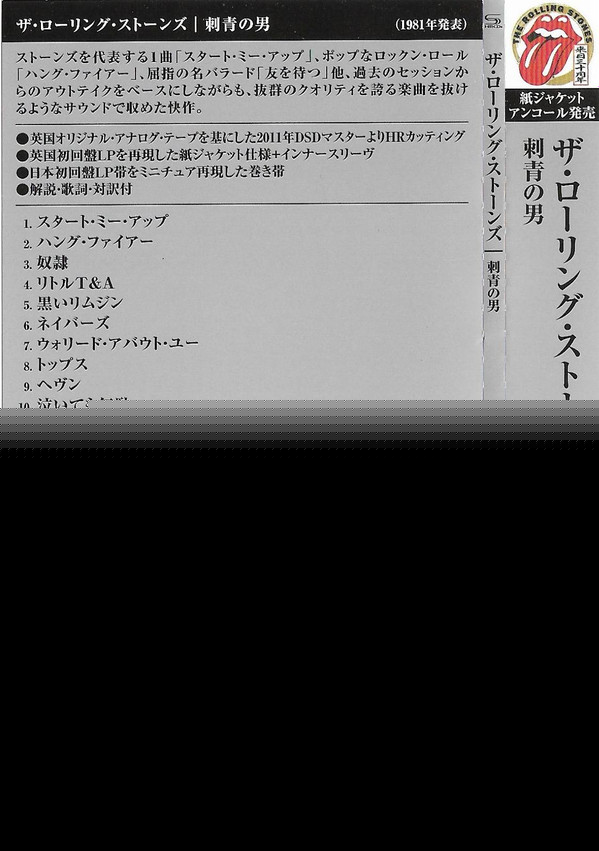 ザ・ローリング・ストーンズ｜刺青の男
(1981年発表)
ストーンズを代表する1曲「スタート・ミー・アップ」、ポップなロックン・ロール
「ハング・ファイアー」、屈指の名バラード「友を待つ」他、過去のセッションか
らのアウトテイクをベースにしながらも、抜群のクオリティを誇る楽曲を抜け
るようなサウンドで収めた快作。
●英国オリジナル・アナログ・テープを基にした2011年DSDマスターよりHRカッティング
●英国初回盤LPを再現した紙ジャケット仕様+インナースリーヴ
●日本初回盤LP帯をミニチュア再現した巻き帯
●解説・歌詞・対訳付
1. スタート・ミー・アップ
2. ハング・ファイアー
3. 奴隷
4. リトルT&A
5. 黒いリムジン
6. ネイバーズ
7. ウォリード・アバウト・ユー
8. トップス
9. ヘヴン
10.
ザ・ローリング・ストーンズ｜刺青の男
THE ROLLING STONES
来日三十周年
紙ジャケット
アンコール発売
ザ・ローリング・スト
刺青の男